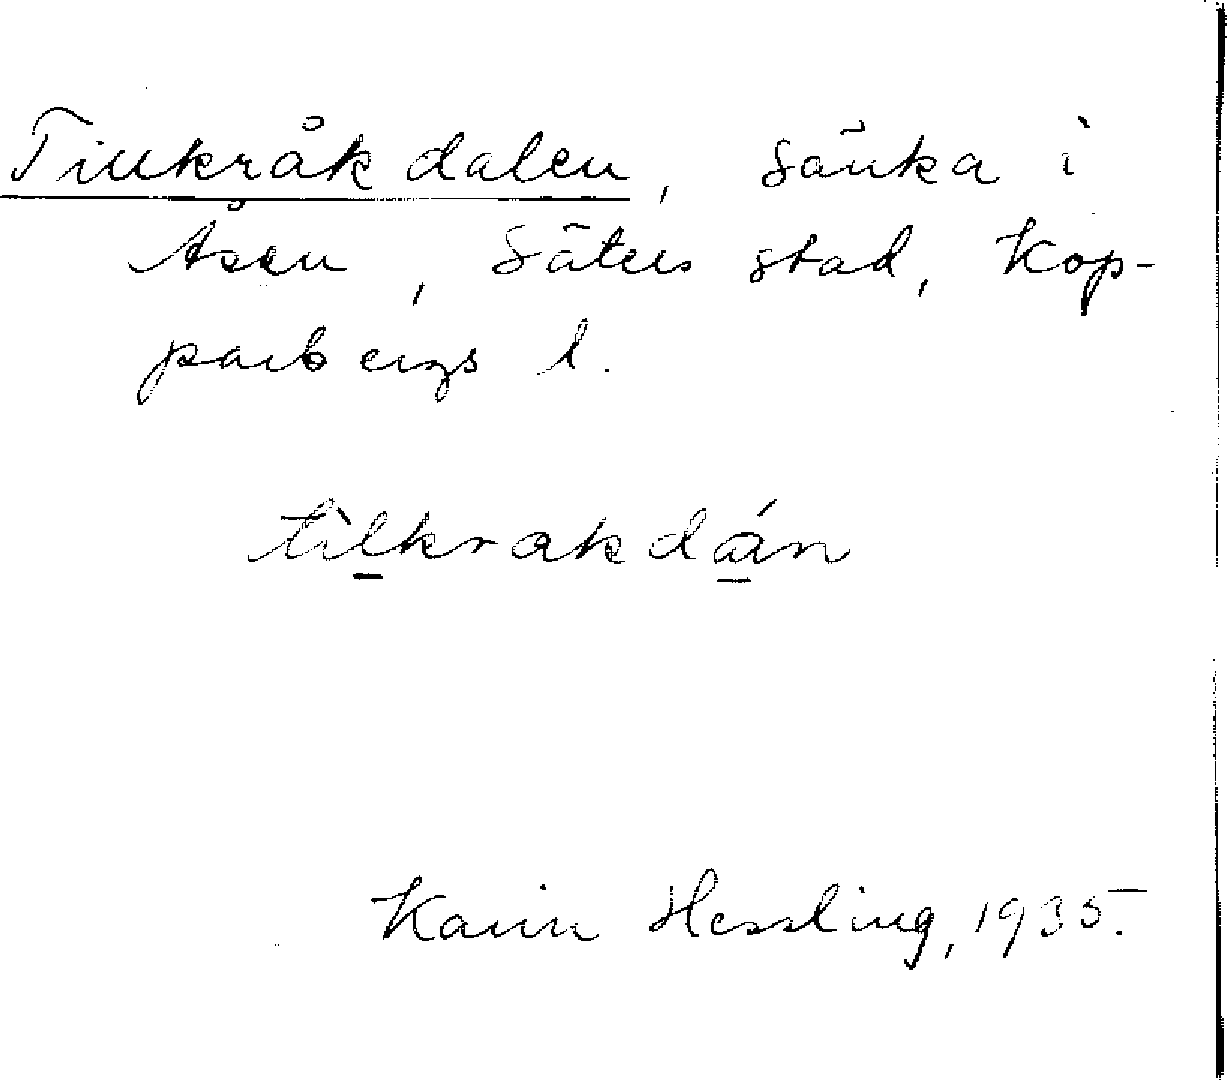 Tillkråkdalen, sänka i
Åsen, Säters stad, Kop-
parbergs l.
tìlkrakdán
Karin Hessling, 1935.